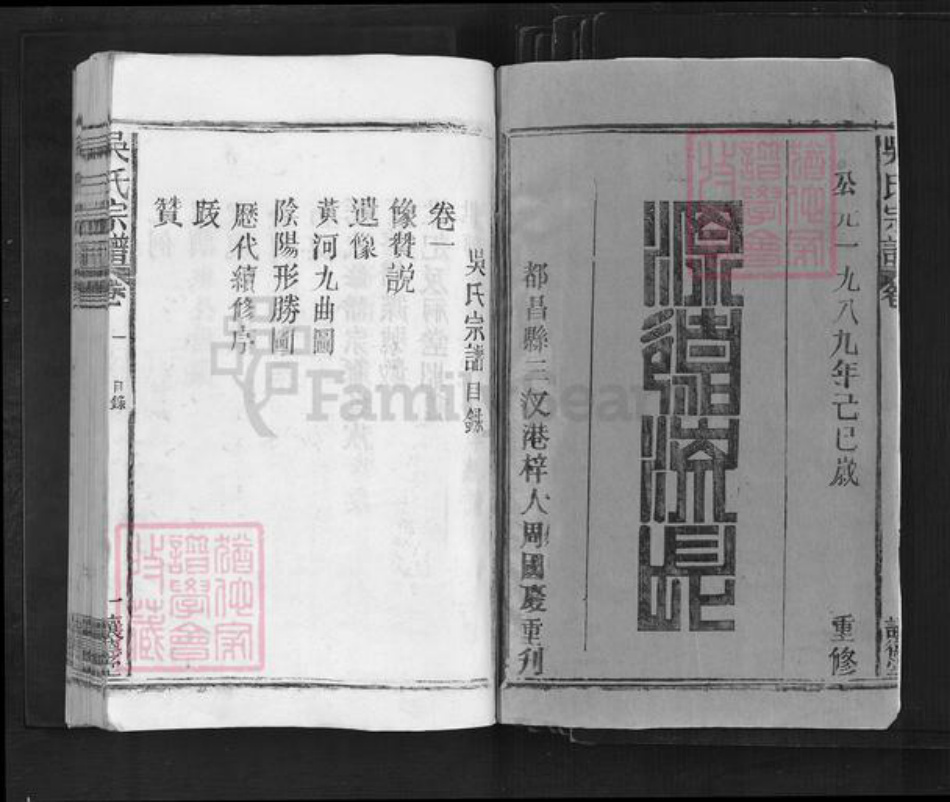 公元一九八九年己巳歲 重修
源遠流長
都昌縣三汊港梓人周國慶重刊
吳氏宗譜目錄
卷一
像贊説
遺像
黃河九曲圖
陰陽形勝圖
歷代續修序
跋
贊
吳氏宗譜 卷一 一 目錄
猶他家譜學會收藏
猶他家譜學會收藏
FamilySearch